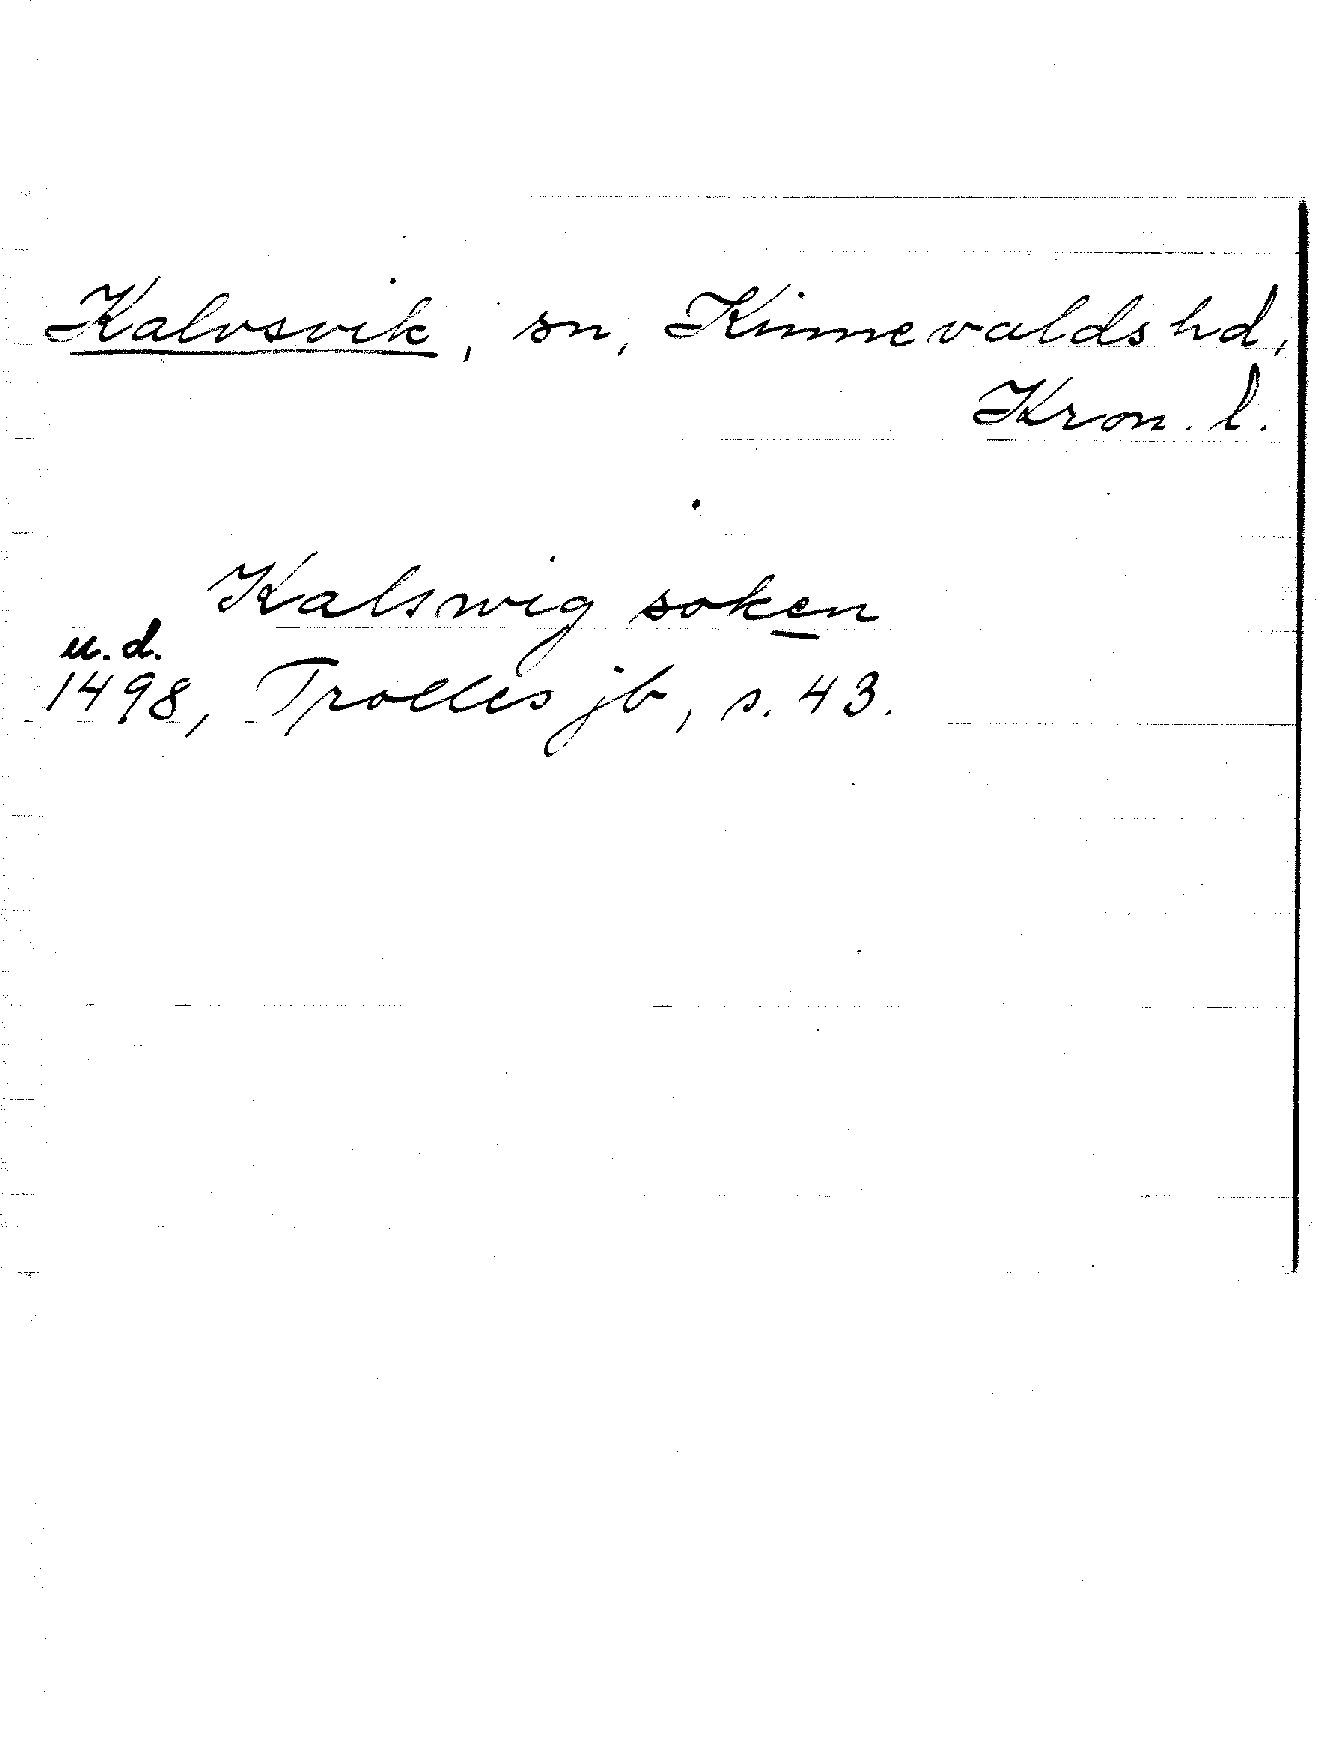 Kalvsvik, sn, Kinnevalds hd,
Kron. l.
Kalswig soken
u.d.
1498, Trolles jb, s. 43.